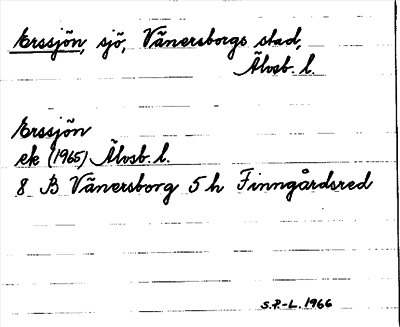 Erssjön, sjö, Vänersborgs stad,
Älvsb. l.
Erssjön
ek (1965) Älvsb. l.
8 B Vänersborg 5 h Finngårdsred
S.P.-L. 1966